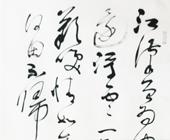 江漢曾為
還浮雲一
歡笑情如
何因不歸